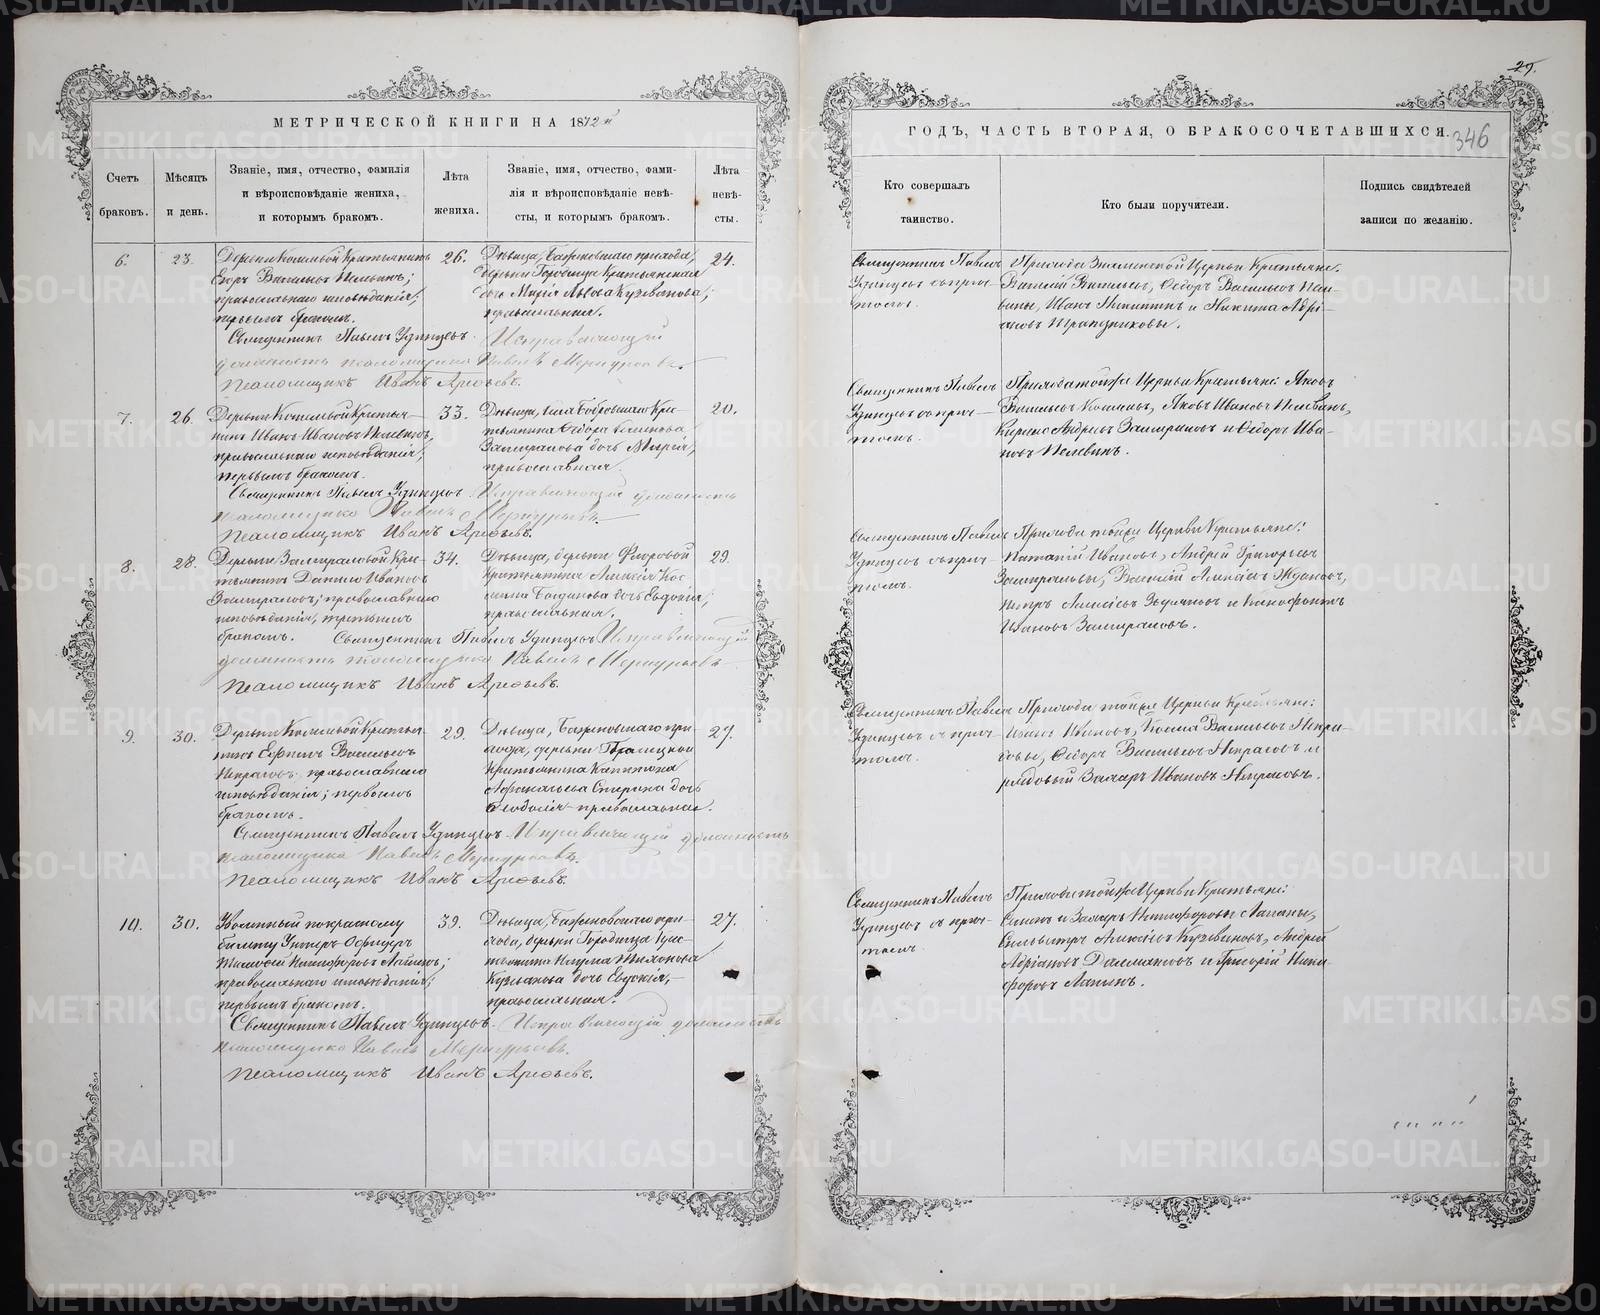 МЕТРИЧЕСКОЙ КНИГИ НА 1872й
Счетъ браковъ.
Мѣсяцъ и день.
Званіе, имя, отчество, фамилія
и вѣроисповѣданіе жениха,
и которымъ бракомъ.
Лѣта жениха.
Званіе, имя, отчество, фами-
лія и вѣроисповѣданіе невѣ-
сты, и которымъ бракомъ.
Лѣта невѣ-
сты.
6.
23.
Деревни Кошелевой Крестьянинъ
Егоръ Васильевъ Пелевинъ;
православнаго исповѣданія;
первымъ бракомъ.
26.
Дѣвица, Баженовскаго прихода,
деревни Городища Крестьянская
дочь Марія Львова Кузеванова;
православная.
24.
Священникъ Павелъ Удинцевъ. Исправляющій
должность псаломщика Павелъ Меркурьевъ.
Псаломщикъ Иванъ Арефьевъ.
7.
26.
Деревни Кошелевой Крестья-
нинъ Иванъ Ивановъ Пелевинъ,
православнаго исповѣданія;
первымъ бракомъ.
33.
Дѣвица, села Бобровскаго Кре-
стьянина Ѳедора
Замиралова дочь Марія,
православная.
20.
Священникъ Павелъ Удинцевъ. Исправляющій должность
псаломщика Павелъ Меркурьевъ.
Псаломщикъ Иванъ Арефьевъ.
8.
28.
Деревни Замираловой Кре-
стьянинъ Данило Ивановъ
Замираловъ; православнаго
исповѣданія, третьимъ
бракомъ.
34.
Дѣвица, деревни Флоровой
Крестьянина Алексія Кос-
Богданова дочь Евдокія;
православная.
29.
Священникъ Павелъ Удинцевъ Исправляющій
должность псаломщика Павелъ Меркурьевъ
Псаломщикъ Иванъ Арефьевъ.
9.
30.
Деревни Кошелевой Крестья-
нинъ Ефимъ Васильевъ
Некрасовъ православнаго
исповѣданія; первымъ
бракомъ.
29.
Дѣвица, Баженовскаго при-
хода, деревни
Крестьянина Капитона
Спирина дочь
Ѳеодосія православная.
27.
Священникъ Павелъ Удинцевъ Исправляющій должность
псаломщика Павелъ Меркурьевъ.
Псаломщикъ Иванъ Арефьевъ.
10.
30.
Уволенный по красному
билету Унтеръ-Офицеръ
Никифоровъ Лапинъ;
православнаго исповѣданія;
первымъ бракомъ.
39.
Дѣвица, Баженовскаго при-
хода, деревни Городища Крес-
тьянина Наума Тихонова
Кузеванова дочь Евдокія,
православная.
27.
Священникъ Павелъ Удинцевъ. Исправляющій должность
псаломщика Павелъ Меркурьевъ.
Псаломщикъ Иванъ Арефьевъ.
29.
ГОДЪ, ЧАСТЬ ВТОРАЯ, О БРАКОСОЧЕТАВШИХСЯ.
346
Кто совершалъ
таинство.
Кто были поручители.
Подпись свидѣтелей
записи по желанію.
Священникъ Павелъ
Удинцевъ съ прич-
томъ.
Прихода Знаменской Церкви Крестьяне:
Василій Васильевъ, Ѳедоръ Васильевъ Пеле-
вины, Иванъ Никитинъ и Никита Адрі-
ановъ Трапезниковы.
Священникъ Павелъ
Удинцевъ съ прич-
томъ.
Прихода той же Церкви Крестьяне: Яковъ
Васильевъ Яковъ Ивановъ Пелевинъ,
Андреевъ Замираловъ и Ѳедоръ Ива-
новъ Пелевинъ.
Священникъ Павелъ
Удинцевъ съ прич-
томъ.
Прихода той же Церкви Крестьяне:
Ивановъ, Андрей Григорьевъ
Замираловы, Василій Алексіевъ Ждановъ,
Петръ Алексіевъ и Ксенофонтъ
Ивановъ Замираловъ.
Священникъ Павелъ
Удинцевъ съ прич-
томъ.
Прихода той же Церкви Крестьяне:
Иванъ Ивановъ, Косма Васильевъ Некра-
совы, Ѳедоръ Васильевъ Некрасовъ и
рядовый Захаръ Ивановъ Некрасовъ.
Священникъ Павелъ
Удинцевъ съ прич-
томъ.
Прихода той же Церкви Крестьяне:
и Захаръ Никифоровы Лапины,
Сильвестръ Алексіевъ Кузевановъ, Андрей
Адріановъ Далматовъ и Григорій Ники-
форовъ Лапинъ.
METRIKI.GASO-URAL.RU